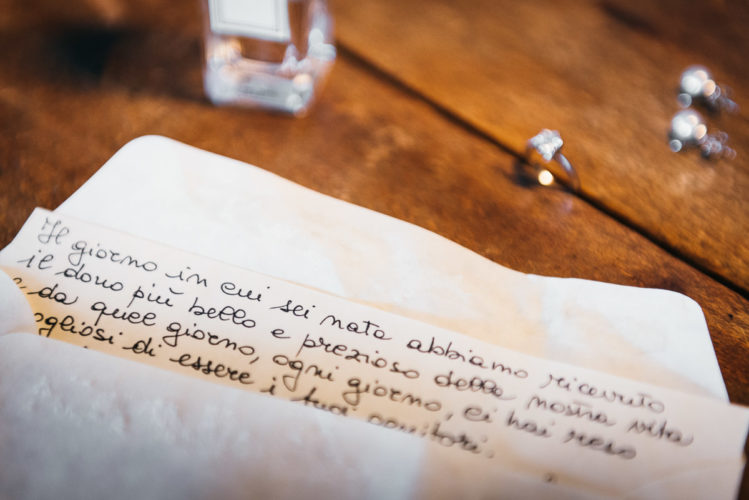 Il giorno in cui sei nata abbiamo ricevuto
il dono più bello e prezioso della nostra vita
e da quel giorno, ogni giorno, ci hai reso
ogliosi di essere i tuoi genitori.